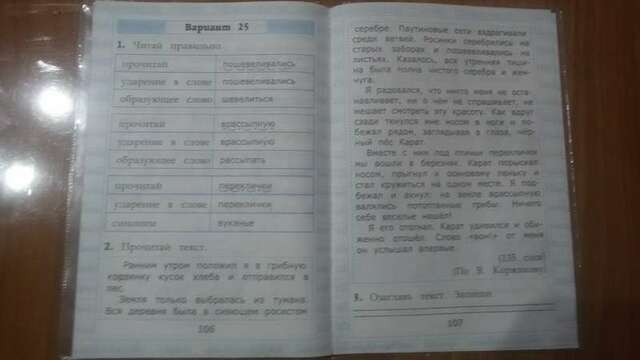 Вариант 25
1. Читай правильно.
прочитай пошевеливались
ударение в слове пошевеливались
образующее слово шевелиться
прочитай врассыпную
ударение в слове врассыпную
образующее слово рассыпать
прочитай переклички
ударение в слове переклички
синоним ауканье
2. Прочитай текст.
Ранним утром положил я в грибную
корзинку кусок хлеба и отправился в
лес.
Земля только выбралась из тумана.
Вся деревня была в сияющем росистом
106
серебре. Паутиновые сети вздрагивали
среди ветвей. Росинки серебрились на
старых заборах и пошевеливались на
листьях. Казалось, вся утренняя тиши-
на была полна чистого серебра и жем-
чуга.
Я радовался, что никто меня не оста-
навливает, ни о чём не спрашивает, не
мешает смотреть эту красоту. Как вдруг
сзади ткнулся мне носом в ноги и по-
бежал рядом, заглядывая в глаза, чёр-
ный пёс Карат.
Вместе с ним под птичьи переклички
мы вошли в березняк. Карат порыскал
носом, прыгнул к основому пеньку и
стал кружиться на одном месте. Я под-
бежал и ахнул: на земле врассыпную
валялись потоптанные грибы. Ничего
себе веселье нашёл!
Я его отогнал. Карат удивился и оби-
женно отошёл. Слово «вон!» от меня
он услышал впервые.
(135 слов)
(По В. Коржикову)
3. Озаглавь текст. Запиши.
107